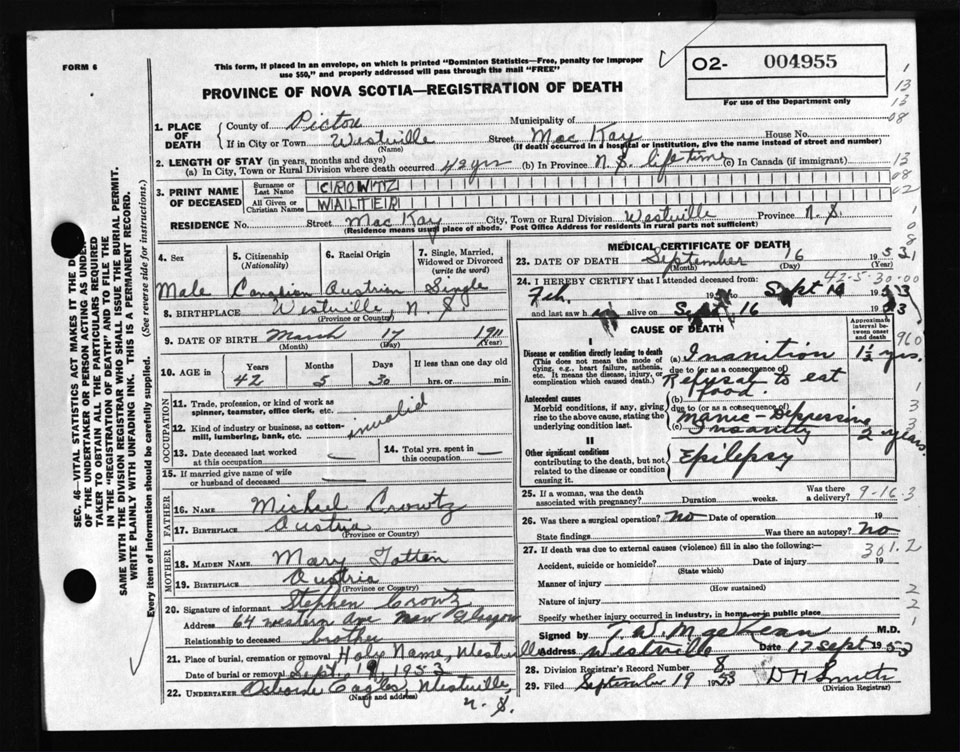 FORM 6
This form, if placed in an envelope, on which is printed "Dominion Statistics—Free, penalty for improper
use $50," and properly addressed will pass through the mail "FREE"
O2- 004955
For use of the Department only
PROVINCE OF NOVA SCOTIA—REGISTRATION OF DEATH
1. PLACE OF DEATH
County of Pictou Municipality of
If in City or Town Westville Street Mac Kay House No.
(Name) (If death occurred in a hospital or institution, give the name instead of street and number)
2. LENGTH OF STAY (in years, months and days)
(a) In City, Town or Rural Division where death occurred 42 yrs (b) In Province N.S. life time (c) In Canada (if immigrant)
3. PRINT NAME OF DECEASED
Surname or Last Name CROWTZ
All Given or Christian Names WALTER
RESIDENCE No. Street Mac Kay City, Town or Rural Division Westville Province N.S.
(Residence means usual place of abode. Post Office Address for residents in rural parts not sufficient)
4. Sex
Male
5. Citizenship (Nationality)
Canadian
6. Racial Origin
Austrian
7. Single, Married, Widowed or Divorced (write the word)
Single
8. BIRTHPLACE Westville, N.S.
(Province or Country)
9. DATE OF BIRTH March 17 1911
(Month) (Day) (Year)
10. AGE in Years Months Days If less than one day old
42 5 30 hrs. or min.
OCCUPATION
11. Trade, profession, or kind of work as spinner, teamster, office clerk, etc.
12. Kind of industry or business, as cotten-mill, lumbering, bank, etc.
invalid
13. Date deceased last worked at this occupation —
14. Total yrs. spent in this occupation —
15. If married give name of wife or husband of deceased
FATHER
16. Name Michael Crowtz
17. Birthplace Austria
(Province or Country)
MOTHER
18. MAIDEN NAME Mary Totten
19. Birthplace Austria
(Province or Country)
20. Signature of informant Stephen Crowtz
Address 64 Western Ave New Glasgow
Relationship to deceased brother
21. Place of burial, cremation or removal Holy Name, Westville
Date of burial or removal Sept 19, 1953
22. UNDERTAKER Osborde Eagles, Westville, N.S.
(Name and address)
MEDICAL CERTIFICATE OF DEATH
23. DATE OF DEATH September 16 1953
(Month) (Day) (Year)
42-5-30-00
24. I HEREBY CERTIFY that I attended deceased from:
Feb. 195 to Sept 16 1953
and last saw h alive on Sept 16 1953
CAUSE OF DEATH
Approximate interval between onset and death
I
Disease or condition directly leading to death
(This does not mean the mode of dying, e.g., heart failure, asthenia, etc. It means the disease, injury, or complication which caused death.)
(a) Inanition 1½ yrs.
960
due to (or as a consequence of)
Refusal to eat food.
Antecedent causes
Morbid conditions, if any, giving rise to the above cause, stating the underlying condition last.
(b)
due to (or as a consequence of)
Manic-Depressive
(c) Insanity 2 years.
II
Other significant conditions
contributing to the death, but not related to the disease or condition causing it.
Epilepsy
25. If a woman, was the death associated with pregnancy? Duration weeks. Was there a delivery?
9-16-3
26. Was there a surgical operation? No Date of operation 19
State findings Was there an autopsy? No
27. If death was due to external causes (violence) fill in also the following:—
301.2
Accident, suicide or homicide? Date of injury 19
(State which)
Manner of injury
(How sustained)
Nature of injury
Specify whether injury occurred in industry, in home or in public place
Signed by T. W. MacKean M.D.
Address Westville Date 17 Sept 1953
28. Division Registrar's Record Number 8
29. Filed September 19 1953 D H Smith
(Division Registrar)
SEC. 46—VITAL STATISTICS ACT MAKES IT THE
OF THE UNDERTAKER OR PERSON ACTING AS
TAKER TO OBTAIN ALL THE PARTICULARS REQUIRED
IN THE "REGISTRATION OF DEATH" AND TO FILE THE
SAME WITH THE DIVISION REGISTRAR WHO SHALL ISSUE THE BURIAL PERMIT.
WRITE PLAINLY WITH UNFADING INK. THIS IS A PERMANENT RECORD.
Every item of information should be carefully supplied. (See reverse side for instructions.)
1
13
13
08
13
08
02
1
0
8
1
1
3
3
2
2
1